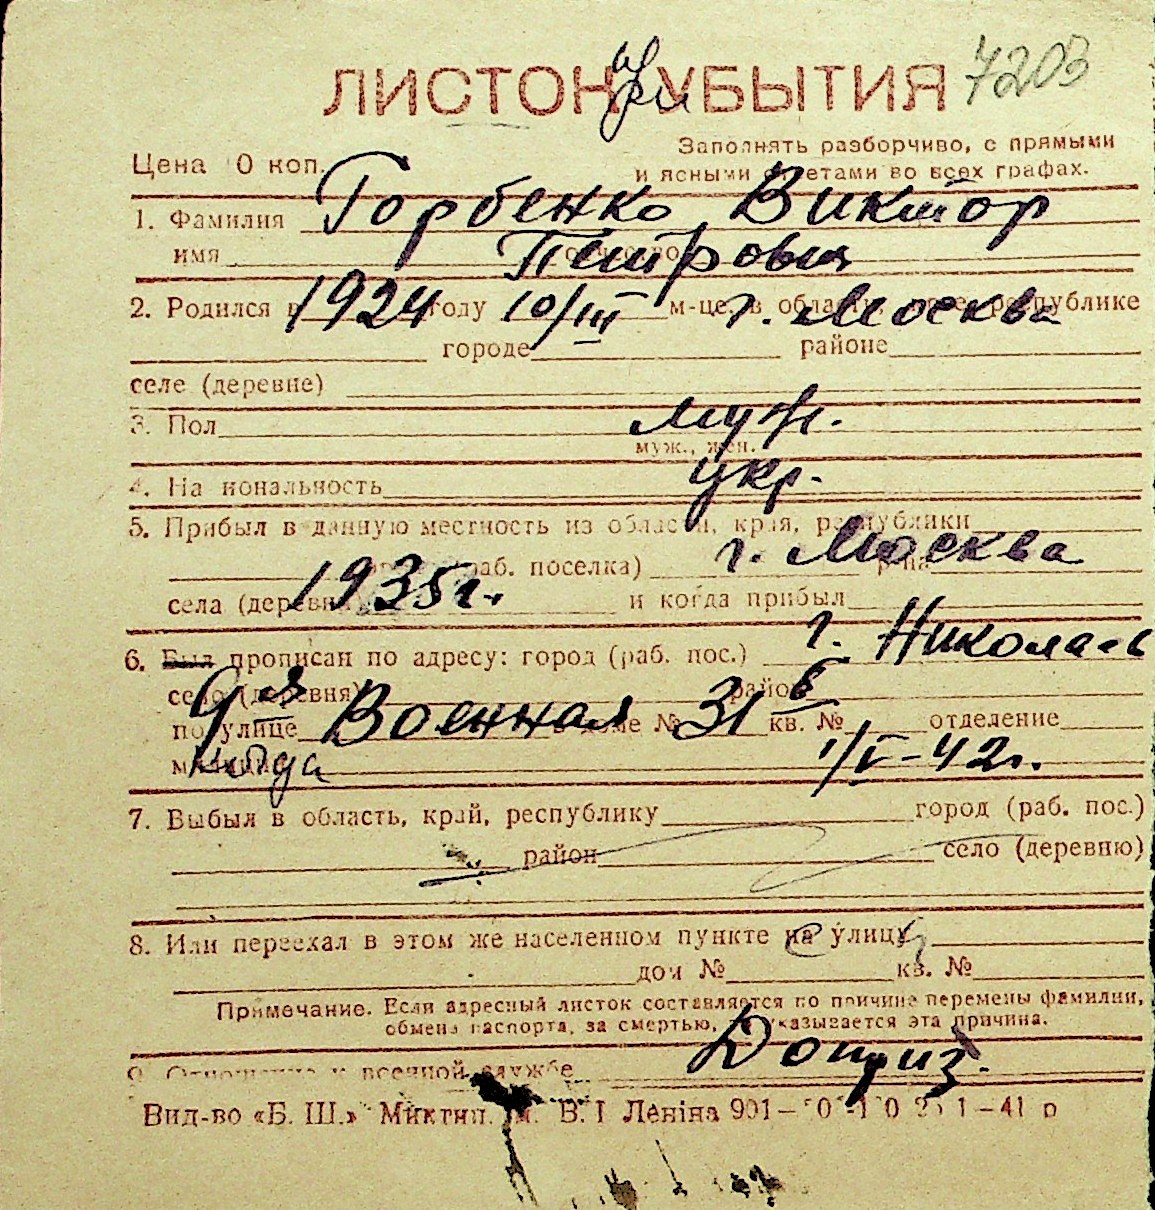 ЛИСТОК УБЫТИЯ 7203
при
Цена 0 коп. Заполнять разборчиво, с прямыми
и ясными ответами во всех графах.
1. Фамилия Горбенко Виктор
имя Петрович
2. Родился в 1924 году 10/III м-це, в области, крае, республике г. Москва
городе районе
селе (деревне)
3. Пол муж.
муж., жен.
4. Национальность укр.
5. Прибыл в данную местность из области, края, республики
раб. поселка) г. Москва р-на
села (деревни) 1935г. и когда прибыл
6. Был прописан по адресу: город (раб. пос.) г. Николаев
село (деревня) район
по улице 9я Военная доме № 31 в кв. № отделение
милиции когда 1/V-42г.
7. Выбыл в область, край, республику город (раб. пос.)
район село (деревню)
8. Или переехал в этом же населенном пункте на улицу
дом № кв. №
Примечание. Если адресный листок составляется по причине перемены фамилии,
обмена паспорта, за смертью, указывается эта причина.
9. Отношение к военной службе Доприз.
Вид-во «Б. Ш.» Миктип. ім. В. І Леніна 901